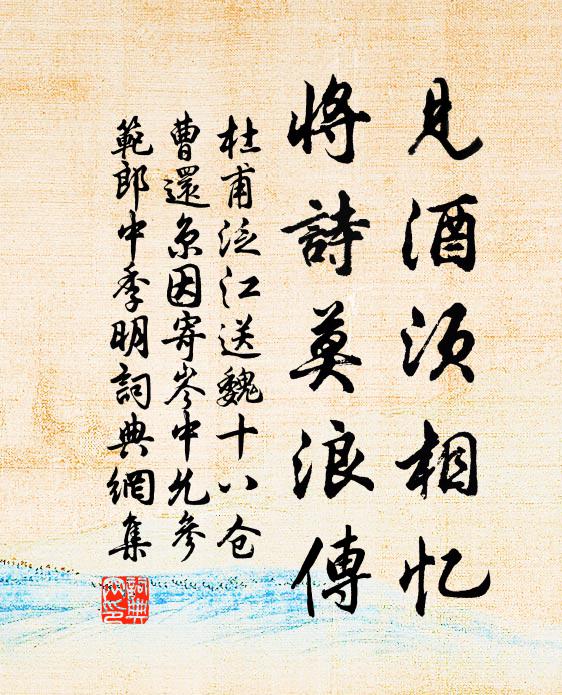 見酒須相忆
將詩莫浪傳
杜甫泛江送魏十八仓
曹還京因寄岑中允參
範郎中季明詞典網集